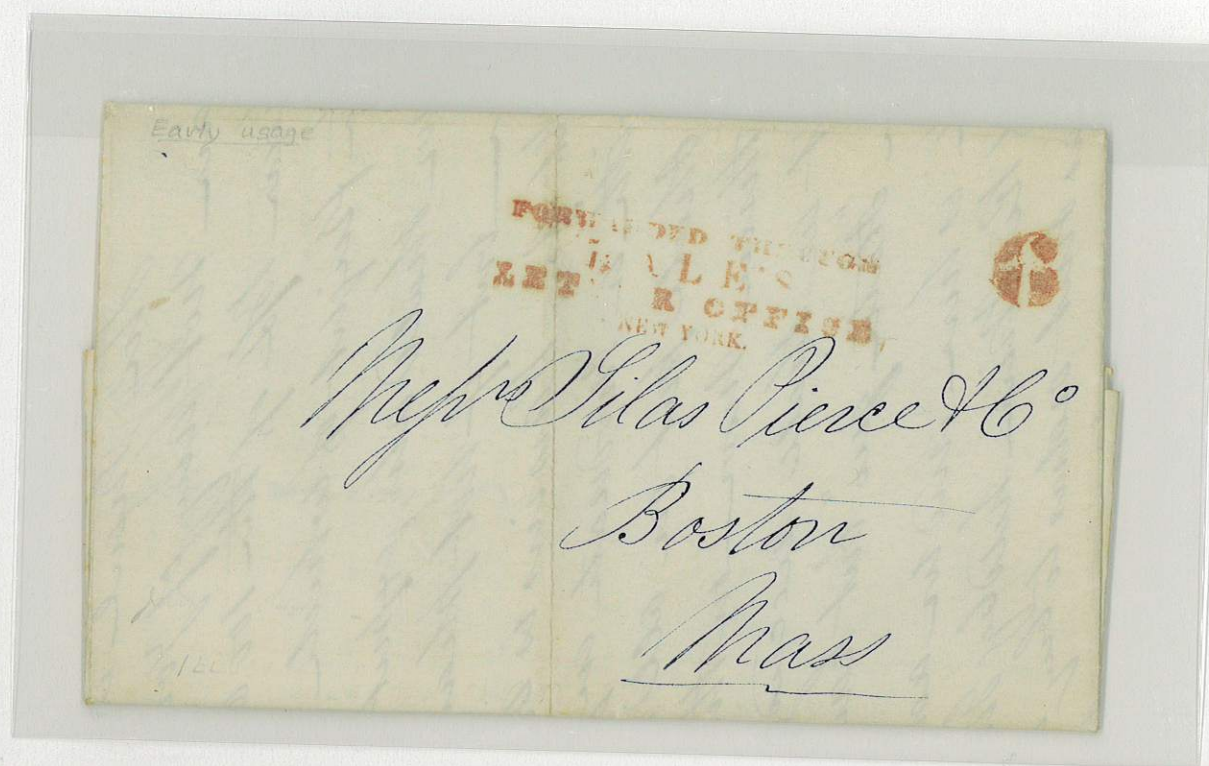 Early usage
FORWARDED THROUGH
HALE'S
LETTER OFFICE,
NEW YORK.
6
Messrs Silas Pierce & Co
Boston
Mass